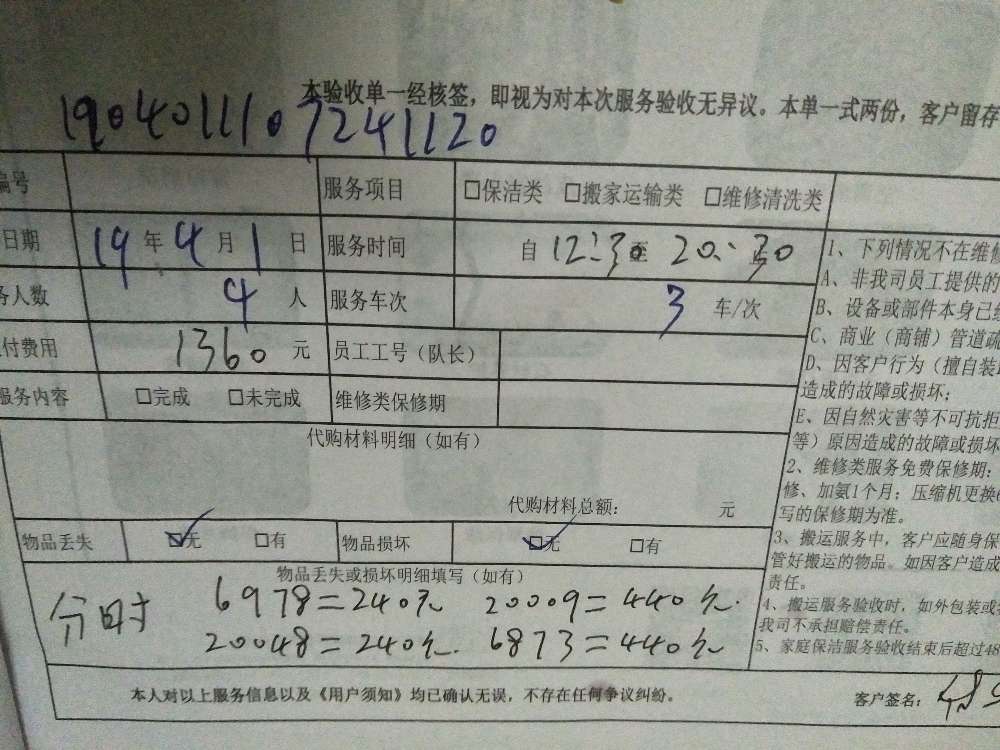 本验收单一经核签，即视为对本次服务验收无异议。本单一式两份，客户留存
1904011107241120
编号 服务项目 □保洁类 □搬家运输类 □维修清洗类
日期 19年4月1日 服务时间 自12:30至20:30
务人数 4人 服务车次 3车/次
付费用 1360元 员工工号（队长）
服务内容 □完成 □未完成 维修类保修期
代购材料明细（如有）
代购材料总额： 元
物品丢失 ☑无 □有 物品损坏 ☑无 □有
物品丢失或损坏明细填写（如有）
分时 6978=240元 20009=440元.
20048=240元. 6873=440元
本人对以上服务信息以及《用户须知》均已确认无误，不存在任何争议纠纷。
客户签名：
1、下列情况不在维修
A、非我司员工提供的
B、设备或部件本身已
C、商业（商铺）管道疏
D、因客户行为（擅自装
造成的故障或损坏；
E、因自然灾害等不可抗拒
等）原因造成的故障或损坏
2、维修类服务免费保修期：
修、加氨1个月；压缩机更换
写的保修期为准。
3、搬运服务中，客户应随身保
管好搬运的物品。如因客户造成
责任。
4、搬运服务验收时，如外包装或
我司不承担赔偿责任。
5、家庭保洁服务验收结束后超过48